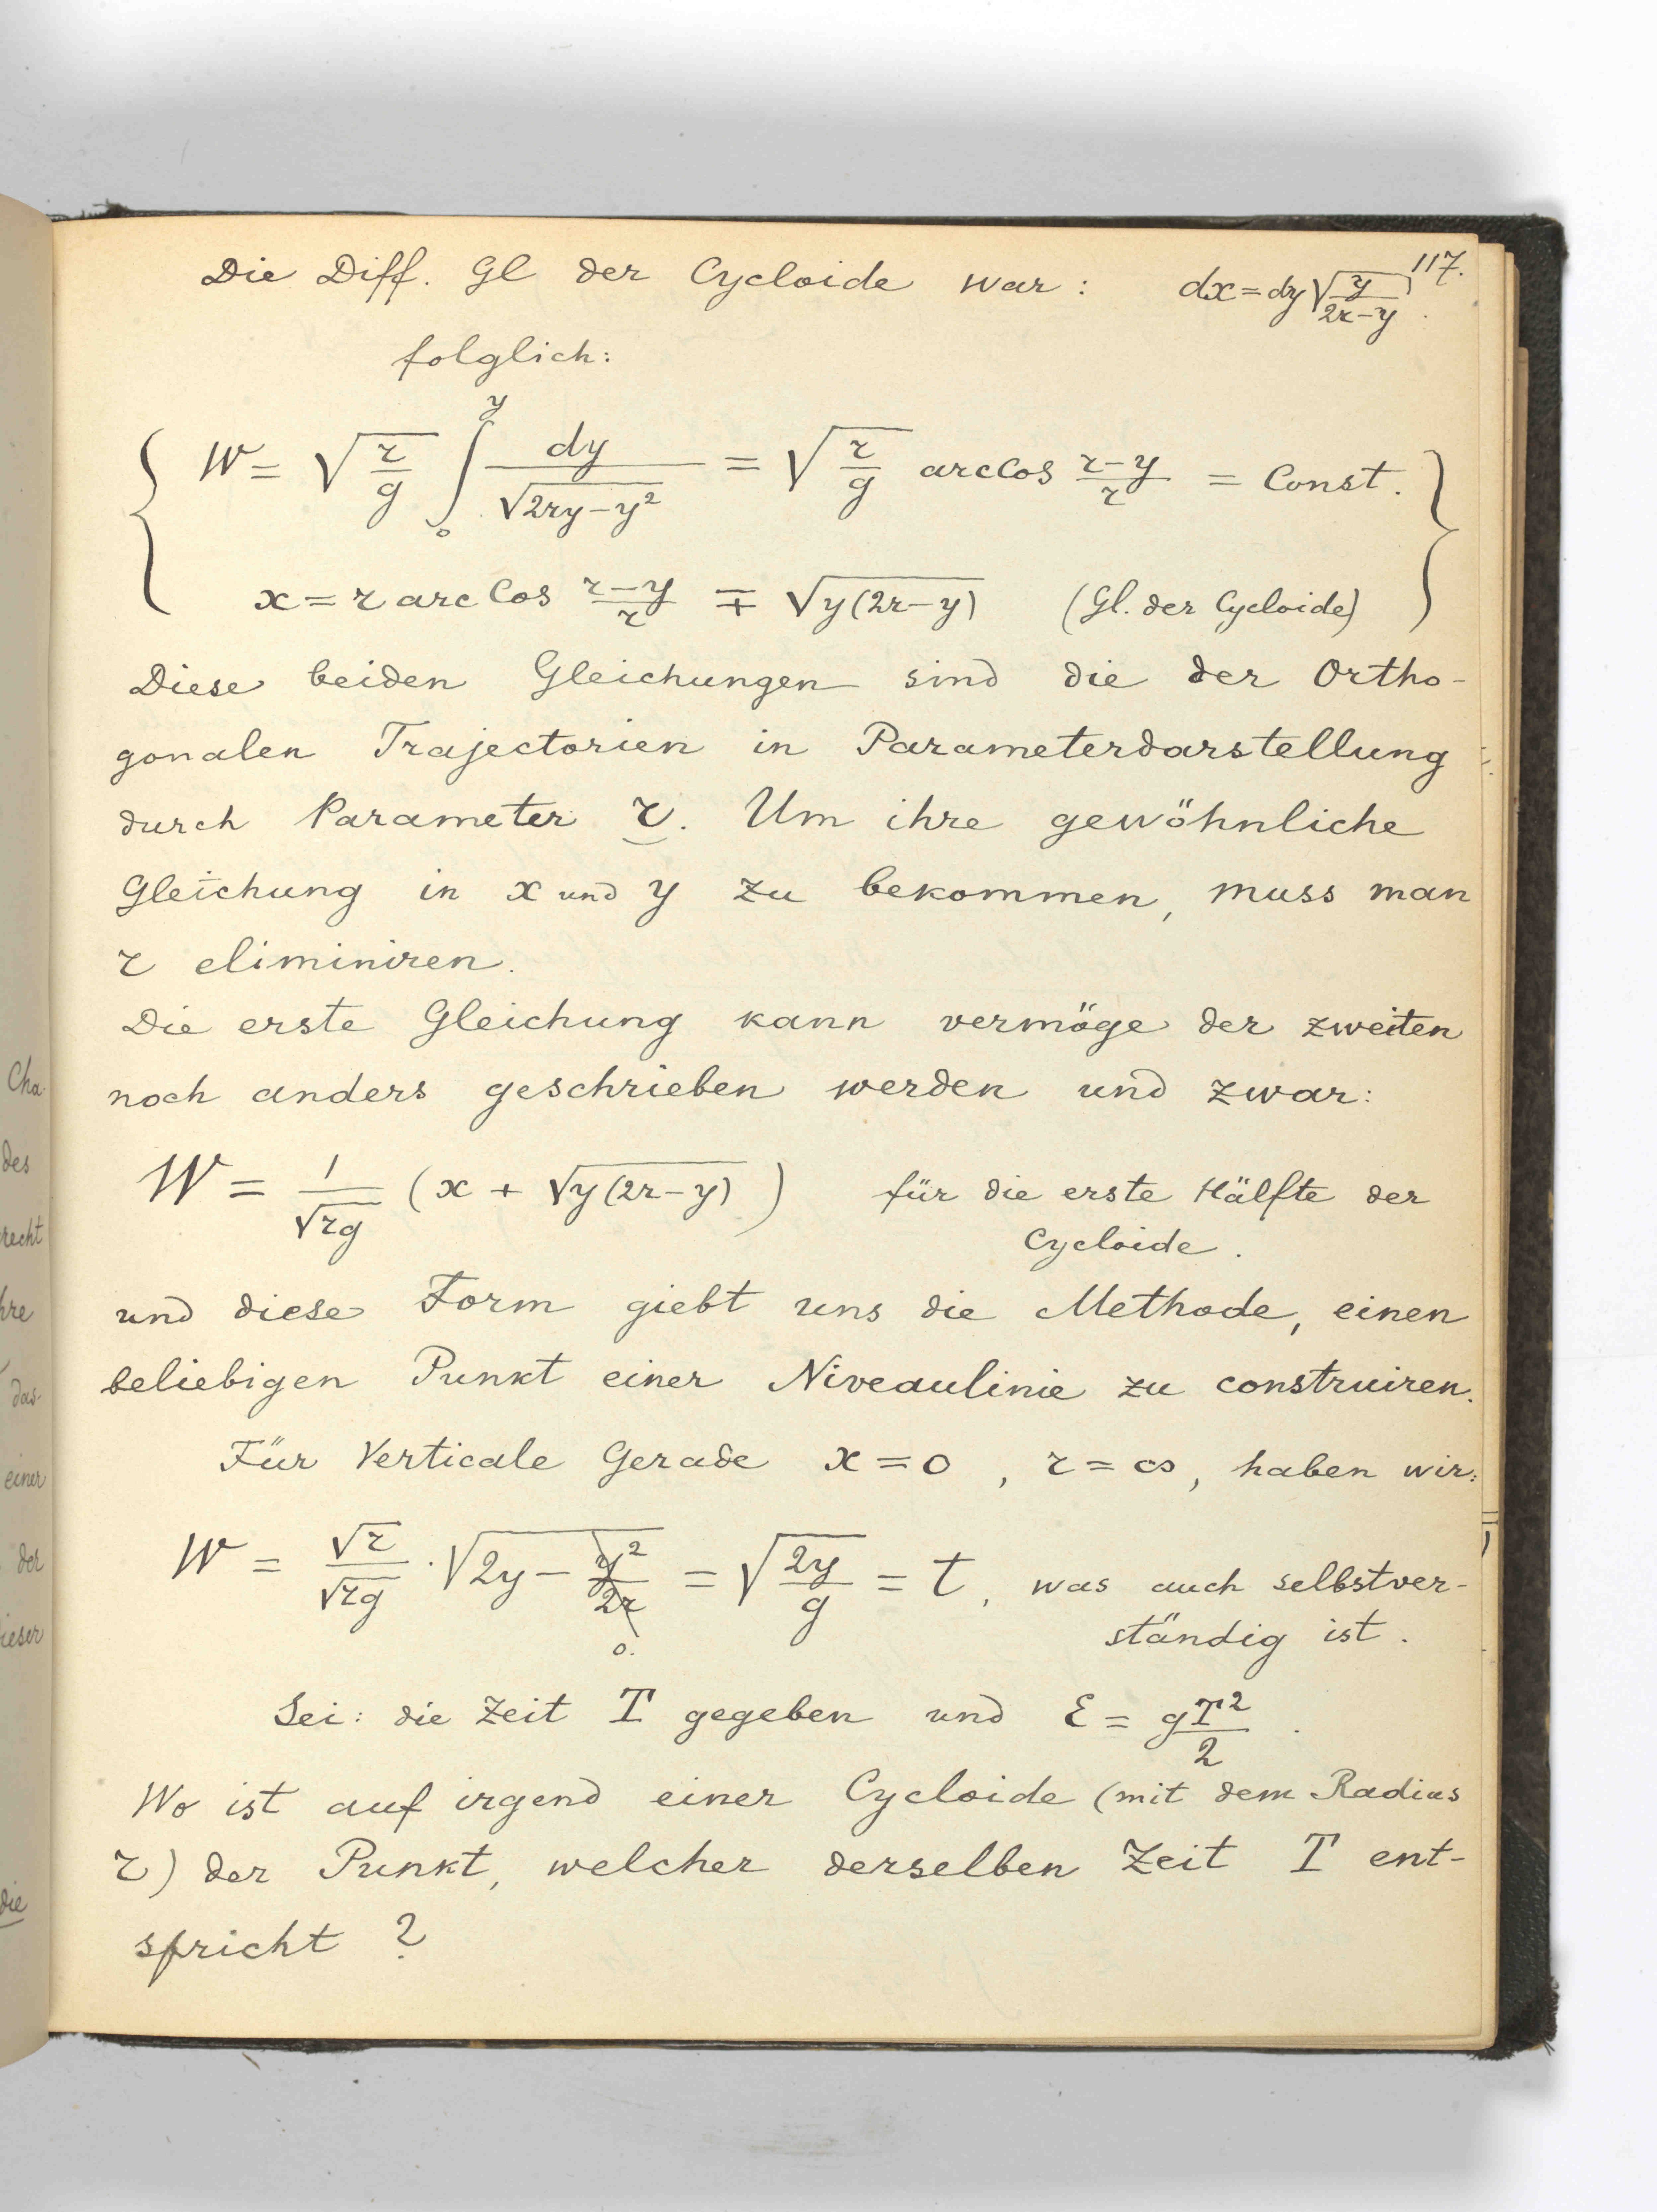 117.
Die Diff. Gl der Cycloide war : dx = dy √(y/(2r−y)) .
folglich:
W = √(r/g) ∫₀^y dy/√(2ry−y²) = √(r/g) arc Cos (r−y)/r = Const.
x = r arc Cos (r−y)/r ∓ √(y(2r−y)) (Gl. der Cycloide)
Diese beiden Gleichungen sind die der Ortho-
gonalen Trajectorien in Parameterdarstellung
durch Parameter r. Um ihre gewöhnliche
Gleichung in x und y zu bekommen, muss man
r eliminiren.
Die erste Gleichung kann vermöge der zweiten
noch anders geschrieben werden und zwar:
W = 1/√(rg) (x + √(y(2r−y)) ) für die erste Hälfte der
Cycloide .
und diese Form giebt uns die Methode, einen
beliebigen Punkt einer Niveaulinie zu construiren.
Für Verticale Gerade x = 0 , r = ∞, haben wir:
W = √r/√(rg) · √(2y − y²/2r) = √(2y/g) = t , was auch selbstver-
0.
ständig ist .
Sei: die Zeit T gegeben und ε = gT²/2 .
Wo ist auf irgend einer Cycloide (mit dem Radius
r) der Punkt, welcher derselben Zeit T ent-
spricht ?
Cha-
des
recht
hre
das-
einer
der
ieser
die